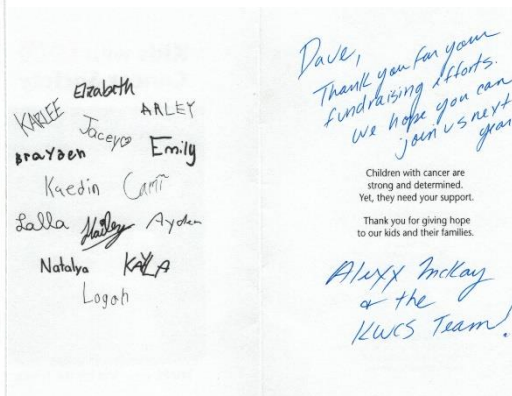 Elizabeth
KARLEE
ARLEY
Jaceyco
BRAYDEN
Emily
Kaedin Cami
Lalla Hailey Ayden
Natalya KAYLA
Logan
Dave,
Thank you for your
fundraising efforts.
We hope you can
join us next
year
Children with cancer are
strong and determined.
Yet, they need your support.
Thank you for giving hope
to our kids and their families.
Alexx McKay
& the
KWCS Team!